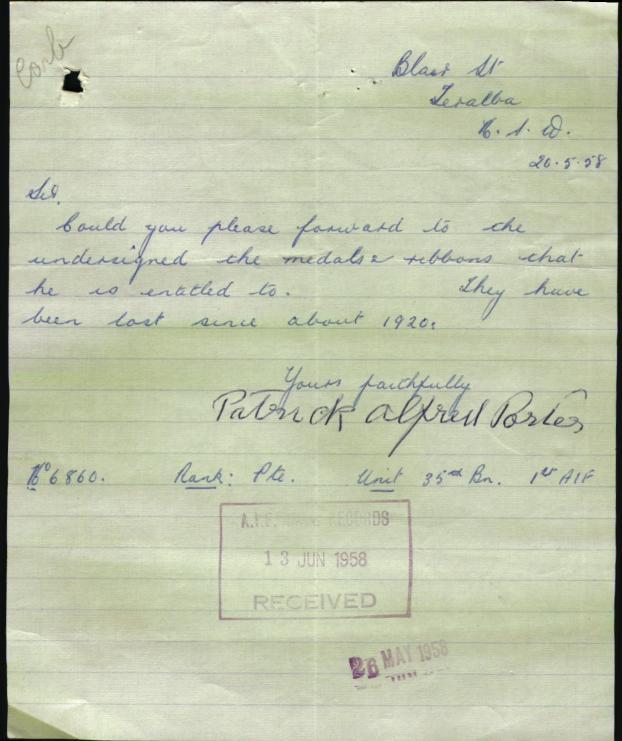 Blair St
Teralba
N. S. W.
20.5.58
Sir,
Could you please forward to the
undersigned the medals & ribbons that
he is entitled to. They have
been lost since about 1920.
Yours faithfully
Patrick Alfred Porter
No 6860. Rank: Pte. Unit 35th Bn. 1st AIF
A.I.F. RECORDS
13 JUN 1958
RECEIVED
26 MAY 1958